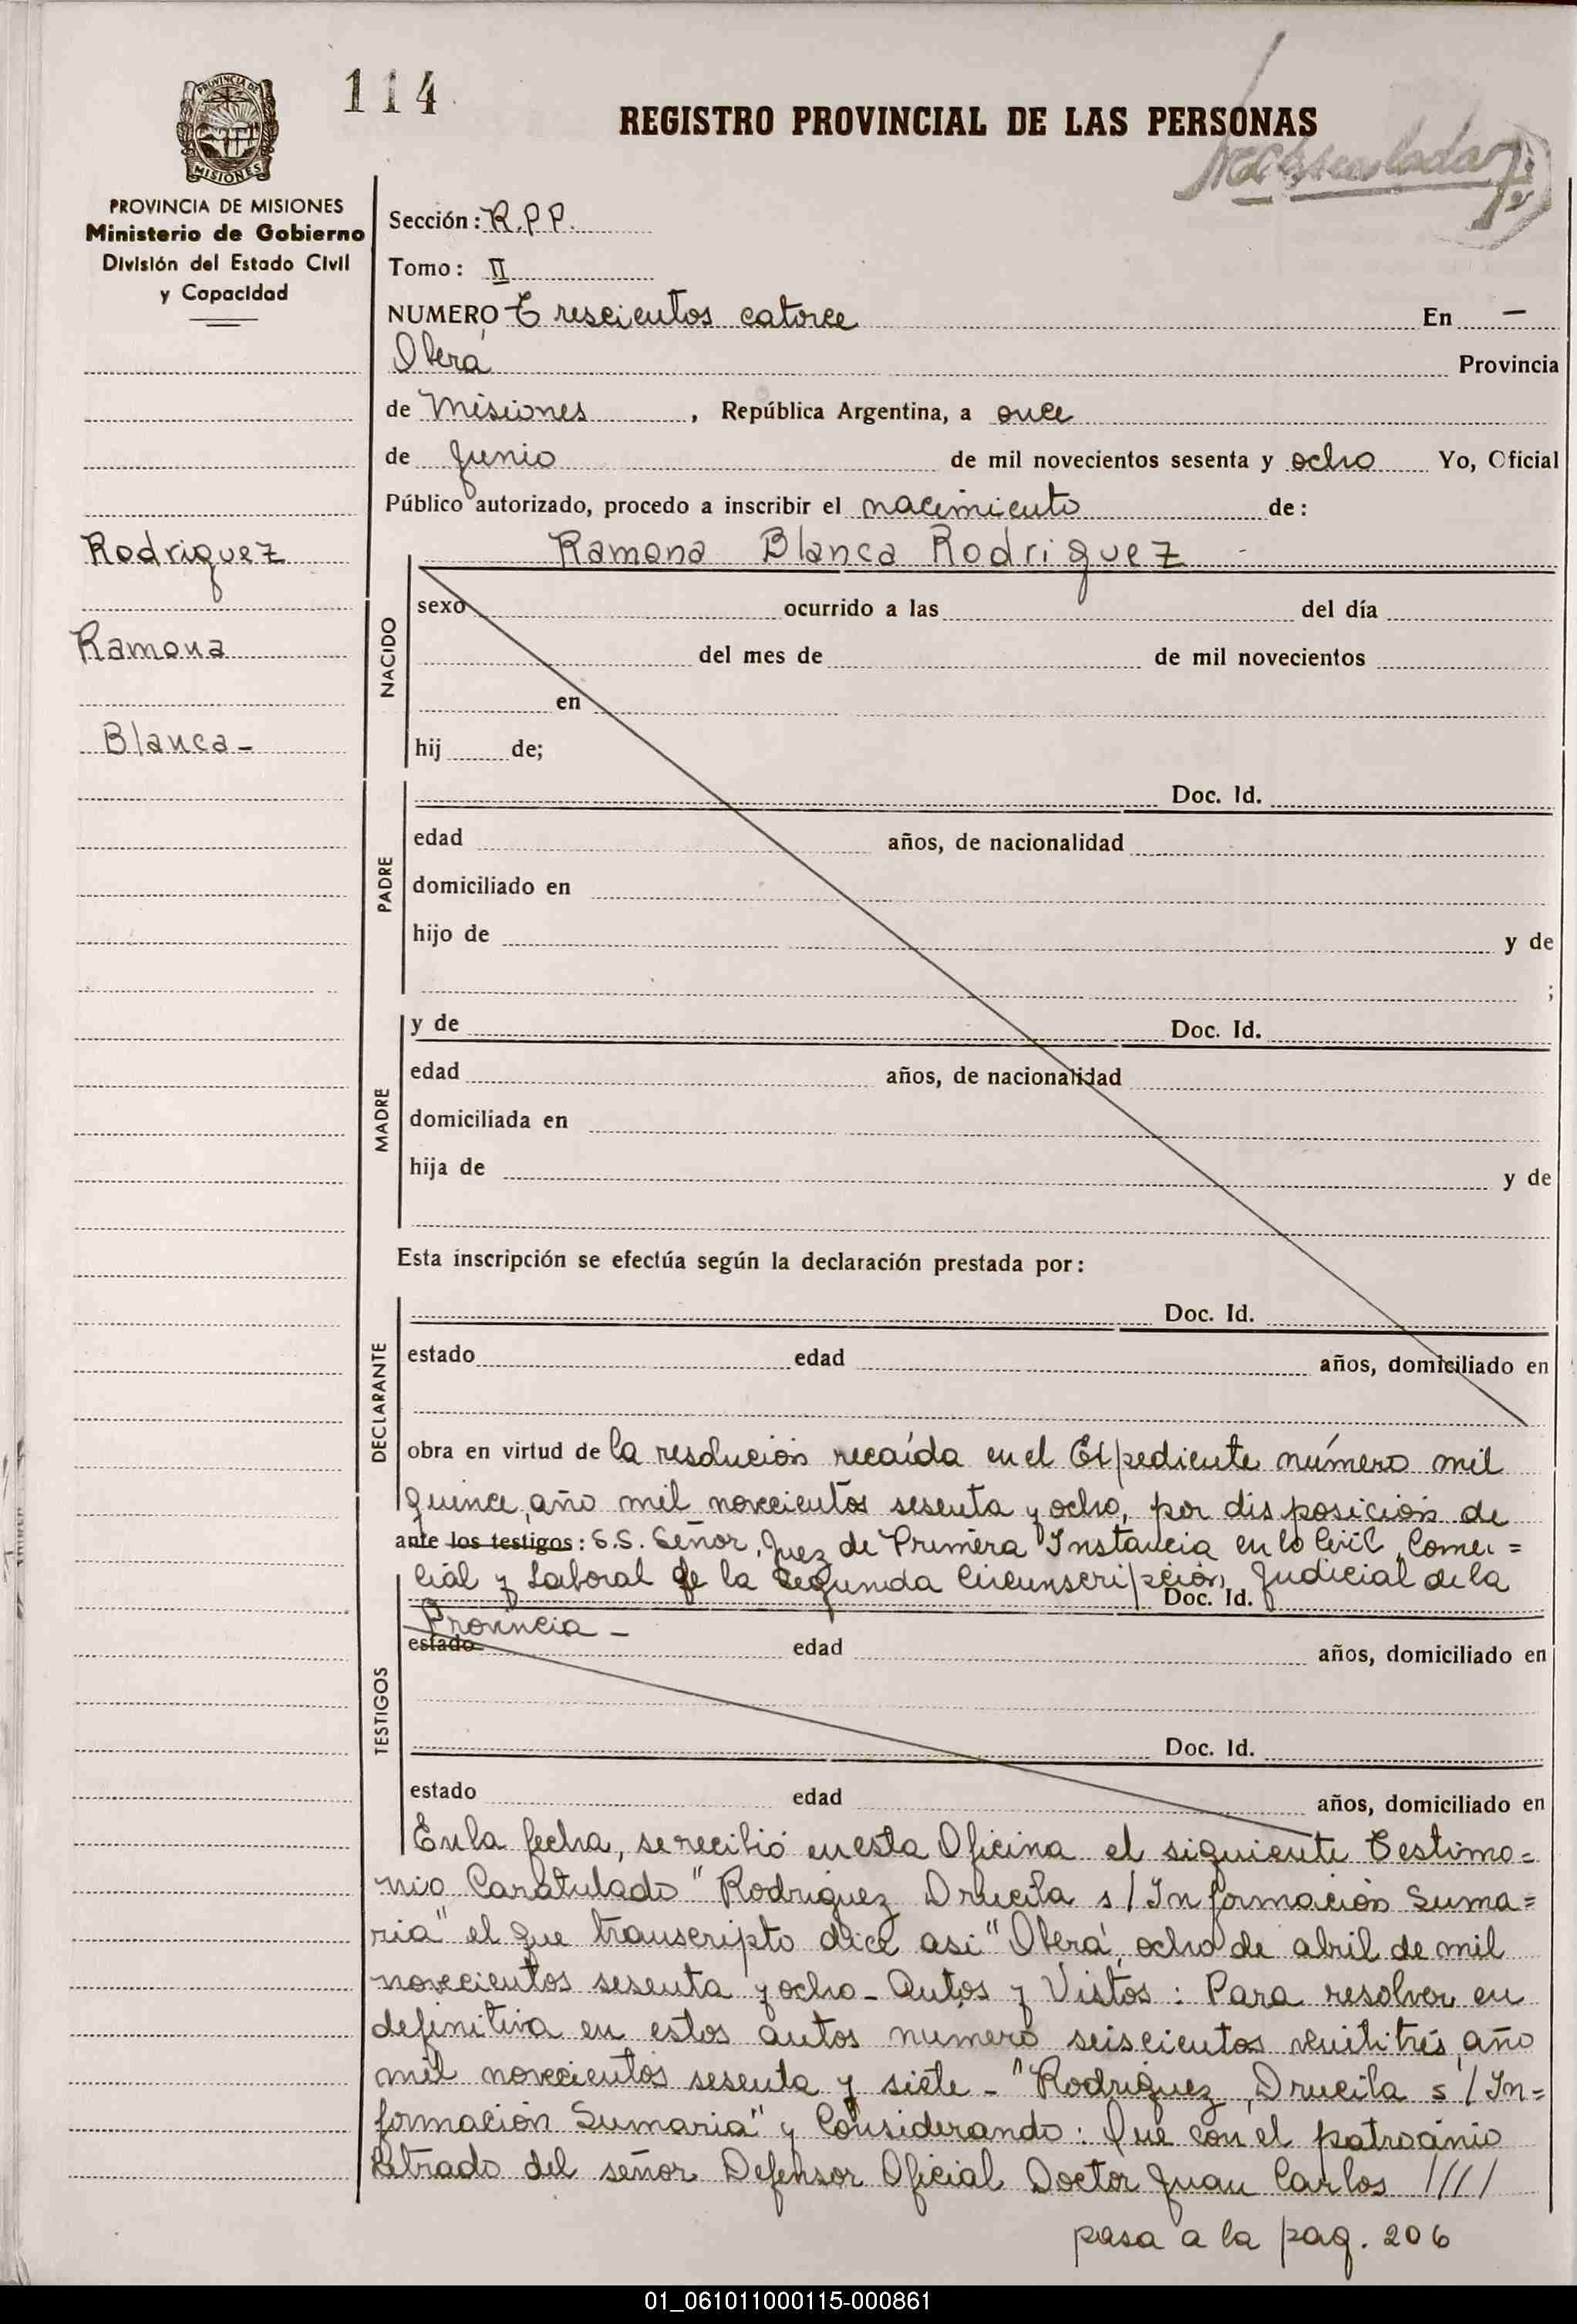 114
REGISTRO PROVINCIAL DE LAS PERSONAS
PROVINCIA DE
MISIONES
PROVINCIA DE MISIONES
Ministerio de Gobierno
División del Estado Civil
y Capacidad
Sección: R.P.P.
Tomo: II
NUMERO Trescientos catorce En —
Oberá Provincia
de Misiones, República Argentina, a once
de Junio de mil novecientos sesenta y ocho Yo, Oficial
Público autorizado, procedo a inscribir el nacimiento de:
Rodriguez
Ramona
Blanca-
Ramona Blanca Rodriguez -
NACIDO
sexo ocurrido a las del día
del mes de de mil novecientos
en
hij de;
PADRE
Doc. Id.
edad años, de nacionalidad
domiciliado en
hijo de y de
;
MADRE
y de Doc. Id.
edad años, de nacionalidad
domiciliada en
hija de y de
Esta inscripción se efectúa según la declaración prestada por:
DECLARANTE
Doc. Id.
estado edad años, domiciliado en
obra en virtud de la resolución recaída en el Expediente número mil
quince, año mil novecientos sesenta y ocho, por disposición de
ante los testigos: S.S. Señor, Juez de Primera Instancia en lo Civil, Comer=
cial y Laboral de la Segunda Circunscripción, Judicial de la
Doc. Id.
Provincia -
TESTIGOS
estado edad años, domiciliado en
Doc. Id.
estado edad años, domiciliado en
En la fecha, se recibió en esta Oficina el siguiente Testimo=
nio Caratulado "Rodriguez Drucila s/Información Suma=
ria" el que transcripto dice asi "Oberá, ocho de abril de mil
novecientos sesenta y ocho- Autos y Vistos: Para resolver en
definitiva en estos autos numero seiscientos veintitrés, año
mil novecientos sesenta y siete - "Rodriguez, Drucila s/In=
formación Sumaria" y Considerando: Que con el patrocinio
letrado del señor Defensor Oficial Doctor Juan Carlos ////
pasa a la pag. 206
01_061011000115-000861